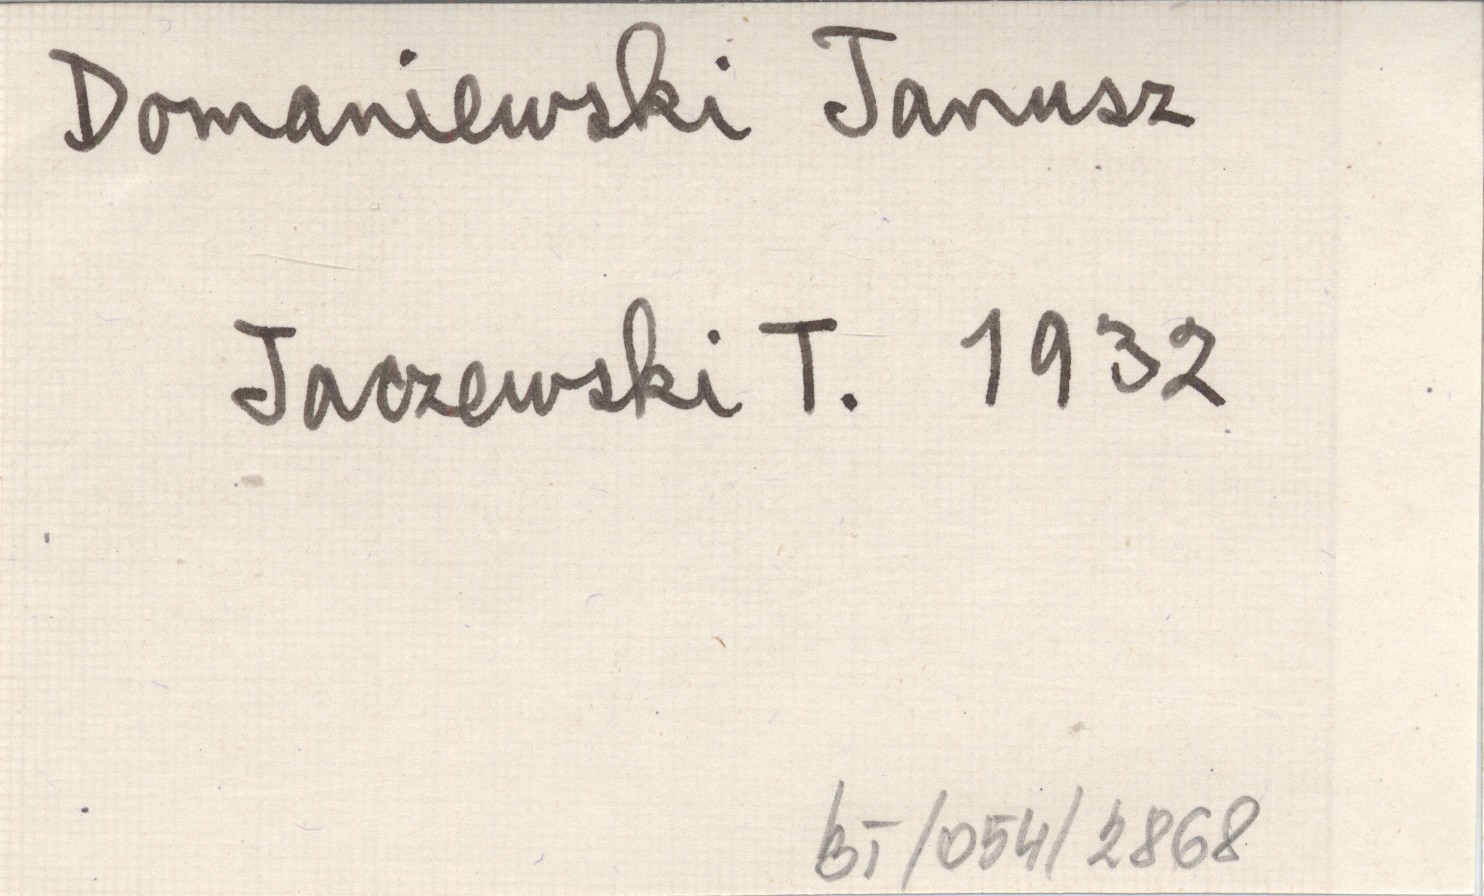 Domaniewski Janusz
Jaczewski T. 1932
BI/054/2868